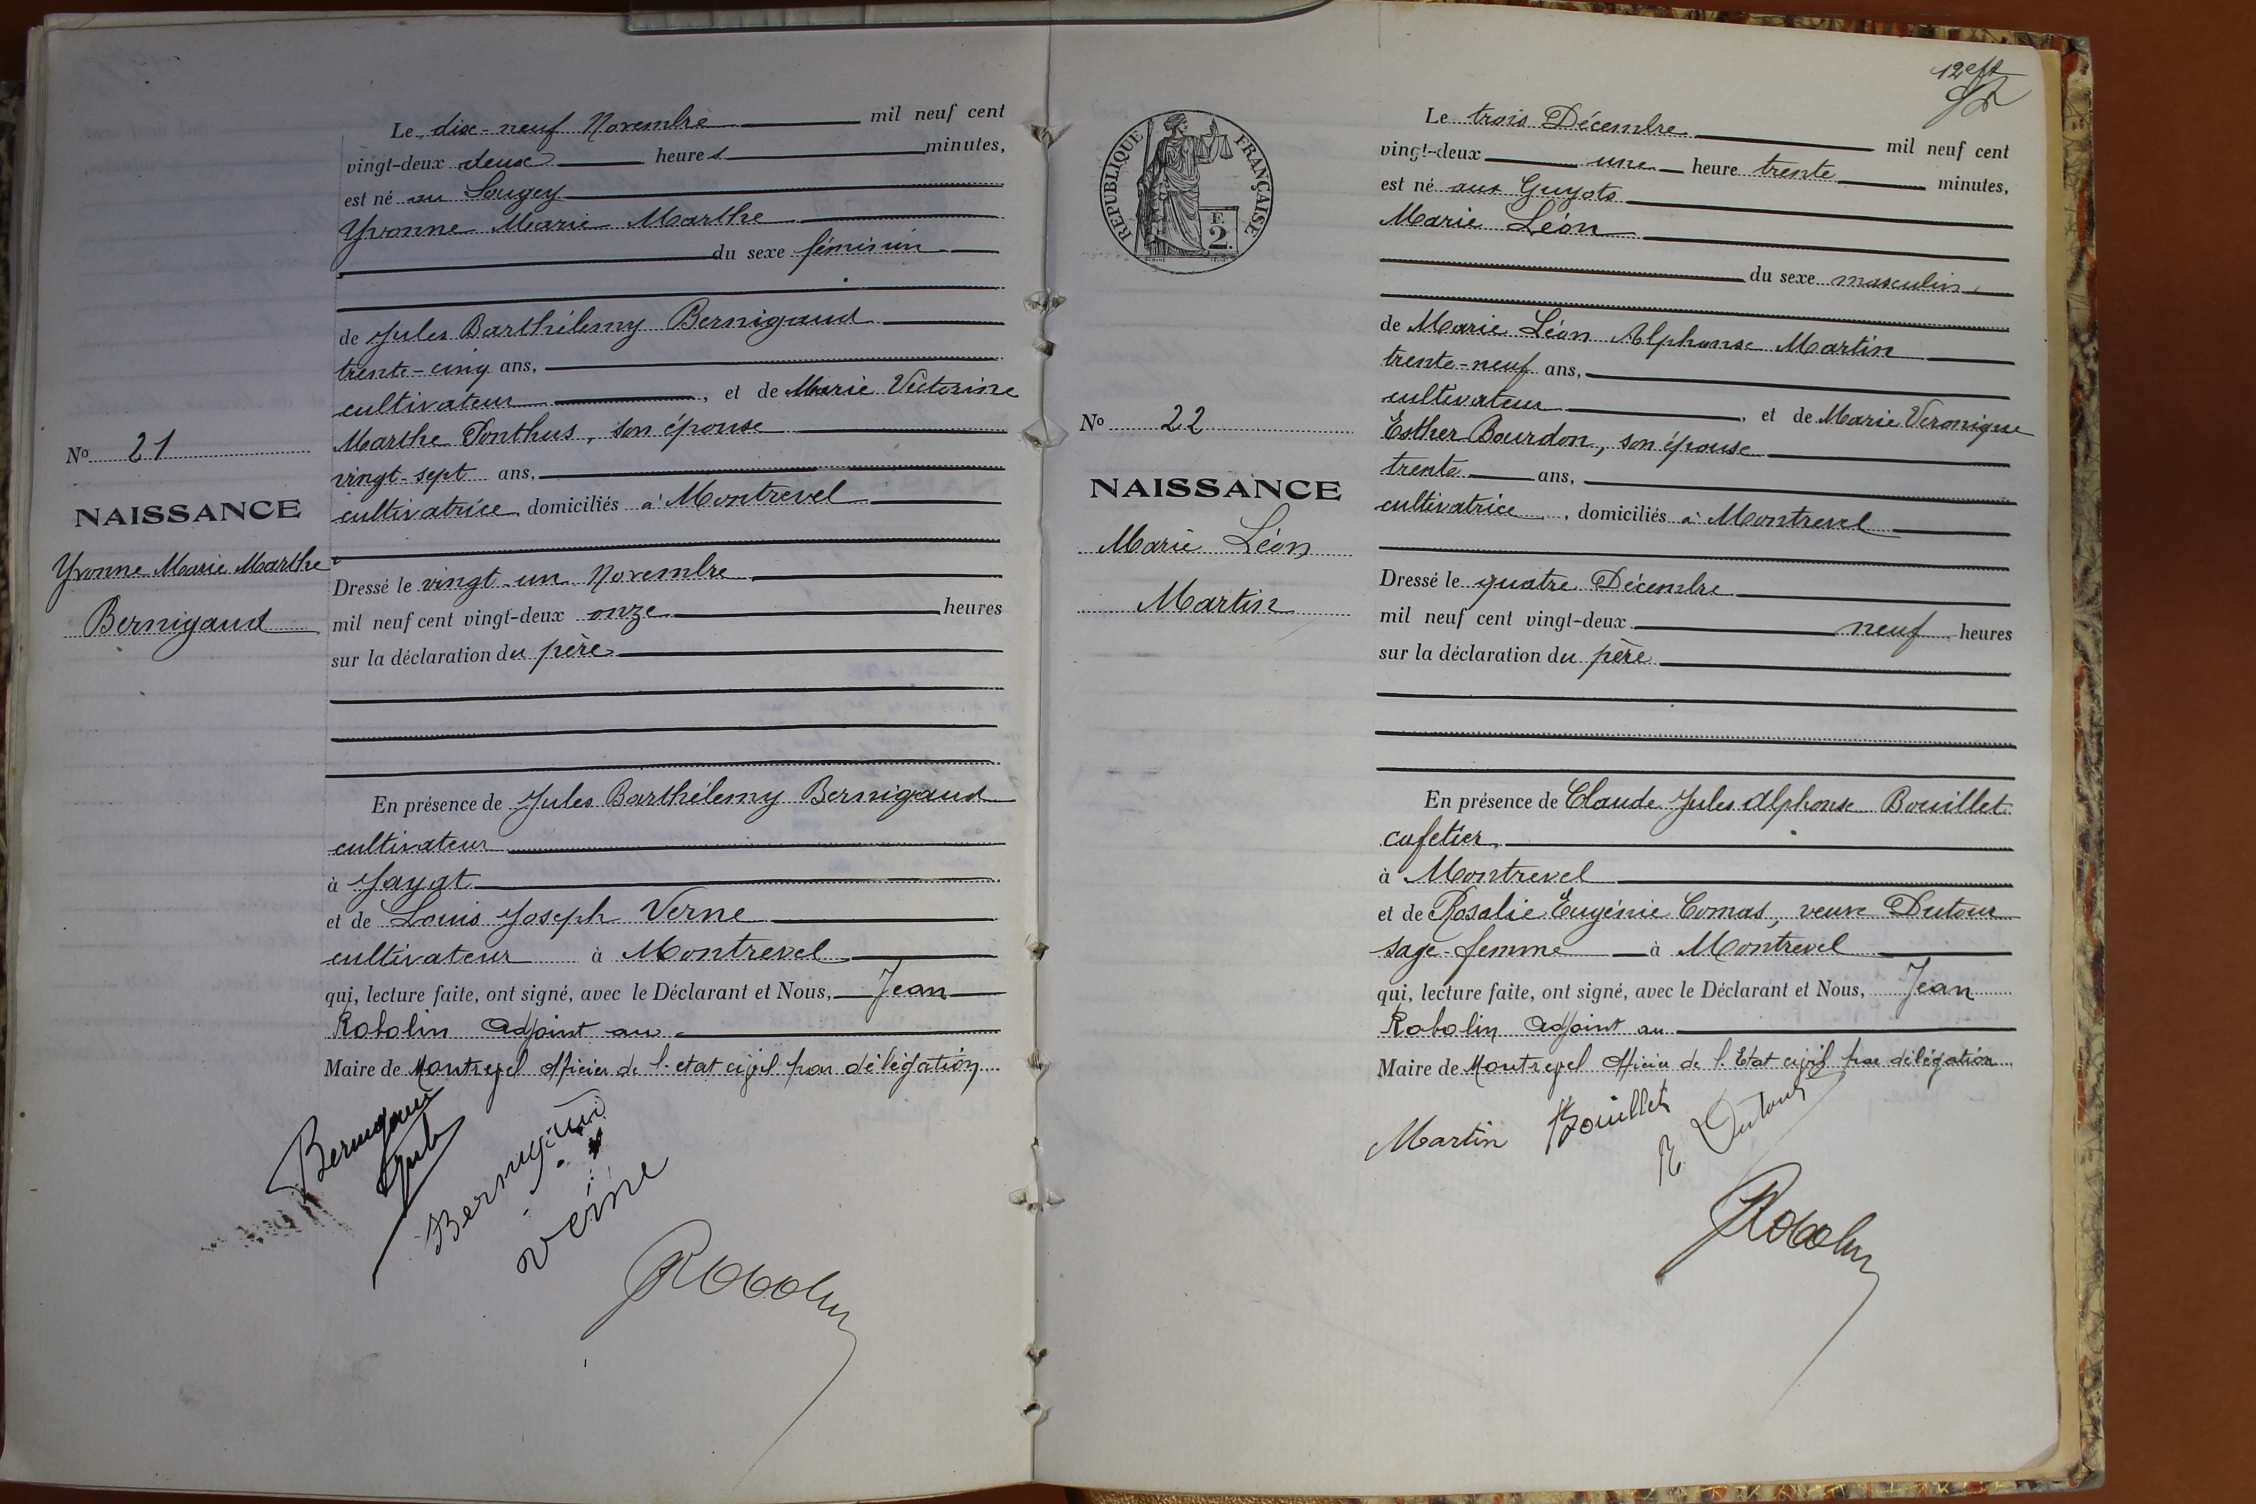 Le dix-neuf Novembre mil neuf cent
vingt-deux deux heures minutes,
est né au Sougey
Yvonne Marie Marthe
du sexe féminin
de Jules Barthélemy Bernigaud
trente-cinq ans,
cultivateur, et de Marie Victorine
Marthe Ponthus, son épouse
vingt-sept ans,
cultivatrice domiciliés à Montrevel
Dressé le vingt-un Novembre
mil neuf cent vingt-deux onze heures
sur la déclaration du père
En présence de Jules Barthélemy Bernigaud
cultivateur
à Jayat
et de Louis Joseph Verne
cultivateur à Montrevel
qui, lecture faite, ont signé, avec le Déclarant et Nous, Jean
Robolin adjoint au
Maire de Montrevel officier de l'etat civil par délégation
No 21
NAISSANCE
Yvonne Marie Marthe
Bernigaud
Bernigaud
Jules
Bernigaud
Verne
Robolin
12
RÉPUBLIQUE FRANÇAISE
F.
2
Le trois Décembre mil neuf cent
vingt-deux une heure trente minutes,
est né aux Guyots
Marie Léon
du sexe masculin
de Marie Léon Alphonse Martin
trente-neuf ans,
cultivateur, et de Marie Veronique
Esther Bourdon, son épouse
trente ans,
cultivatrice, domiciliés à Montrevel
Dressé le quatre Décembre
mil neuf cent vingt-deux neuf heures
sur la déclaration du père
En présence de Claude Jules Alphonse Bouillet
cafetier
à Montrevel
et de Rosalie Eugénie Comas, veuve Dutour
sage-femme à Montrevel
qui, lecture faite, ont signé, avec le Déclarant et Nous, Jean
Robolin adjoint au
Maire de Montrevel officier de l'Etat civil par délégation
No 22
NAISSANCE
Marie Léon
Martin
Martin Bouillet R. Dutour
Robolin